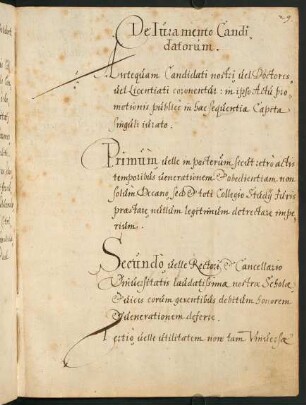 29
De Iuramento Candi
datorum.
Antequam Candidati nostri vel Doctores
vel Licentiati coronentur: in ipso Actu pro
motionis publicè in hæc sequentia Capita
singuli iurato.
Primùm velle in posterum
temporibus venerationem & obedientiam non
solùm Decano sed & toti Collegio Studij Iuris
præstare, nullum legitimum detrectare impe
rium.
Secundò velle Rectori & Cancellario
Vniuersitatis laudatissimæ nostræ Scholæ
vices eorum gerentibus debitum honorem
& venerationem deferre.
Tertiò velle vtilitatem non tam Vniuersæ